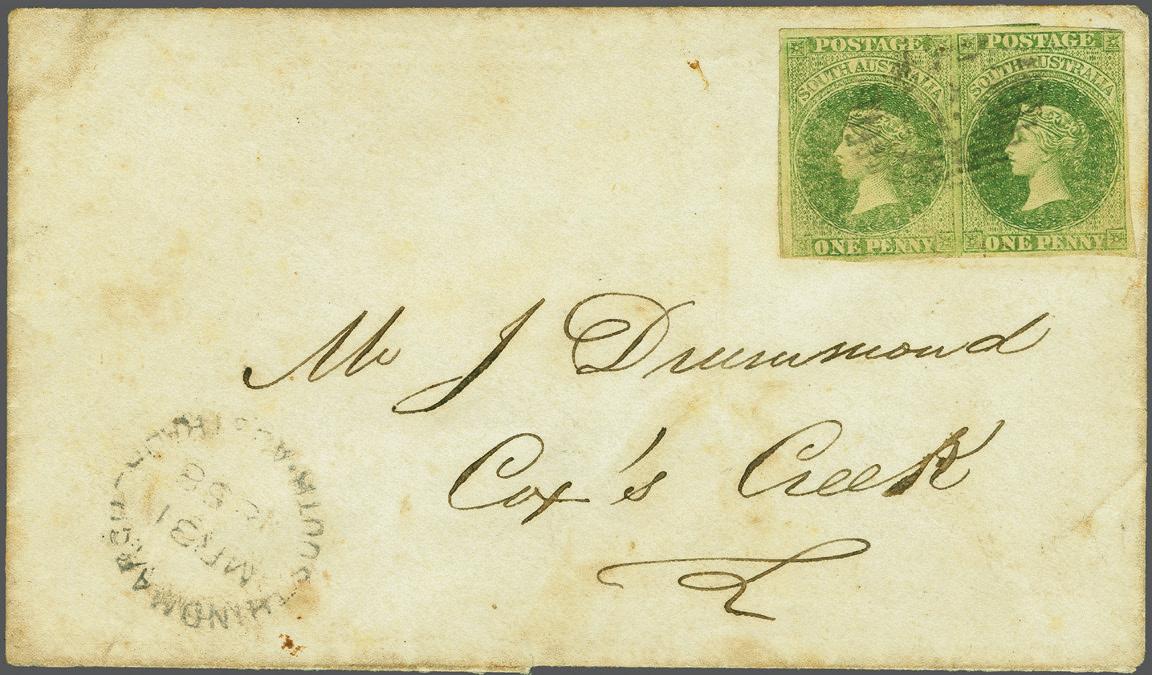 POSTAGE POSTAGE
SOUTH AUSTRALIA SOUTH AUSTRALIA
ONE PENNY ONE PENNY
Mr J Drummond
Cox's Creek
HINDMARSH
SOUTH AUSTRALIA
MR 31
58